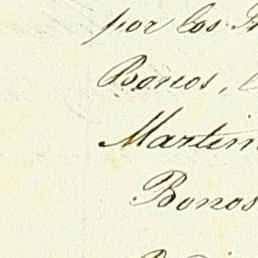 por los
Bonos,
Martin
Bonos